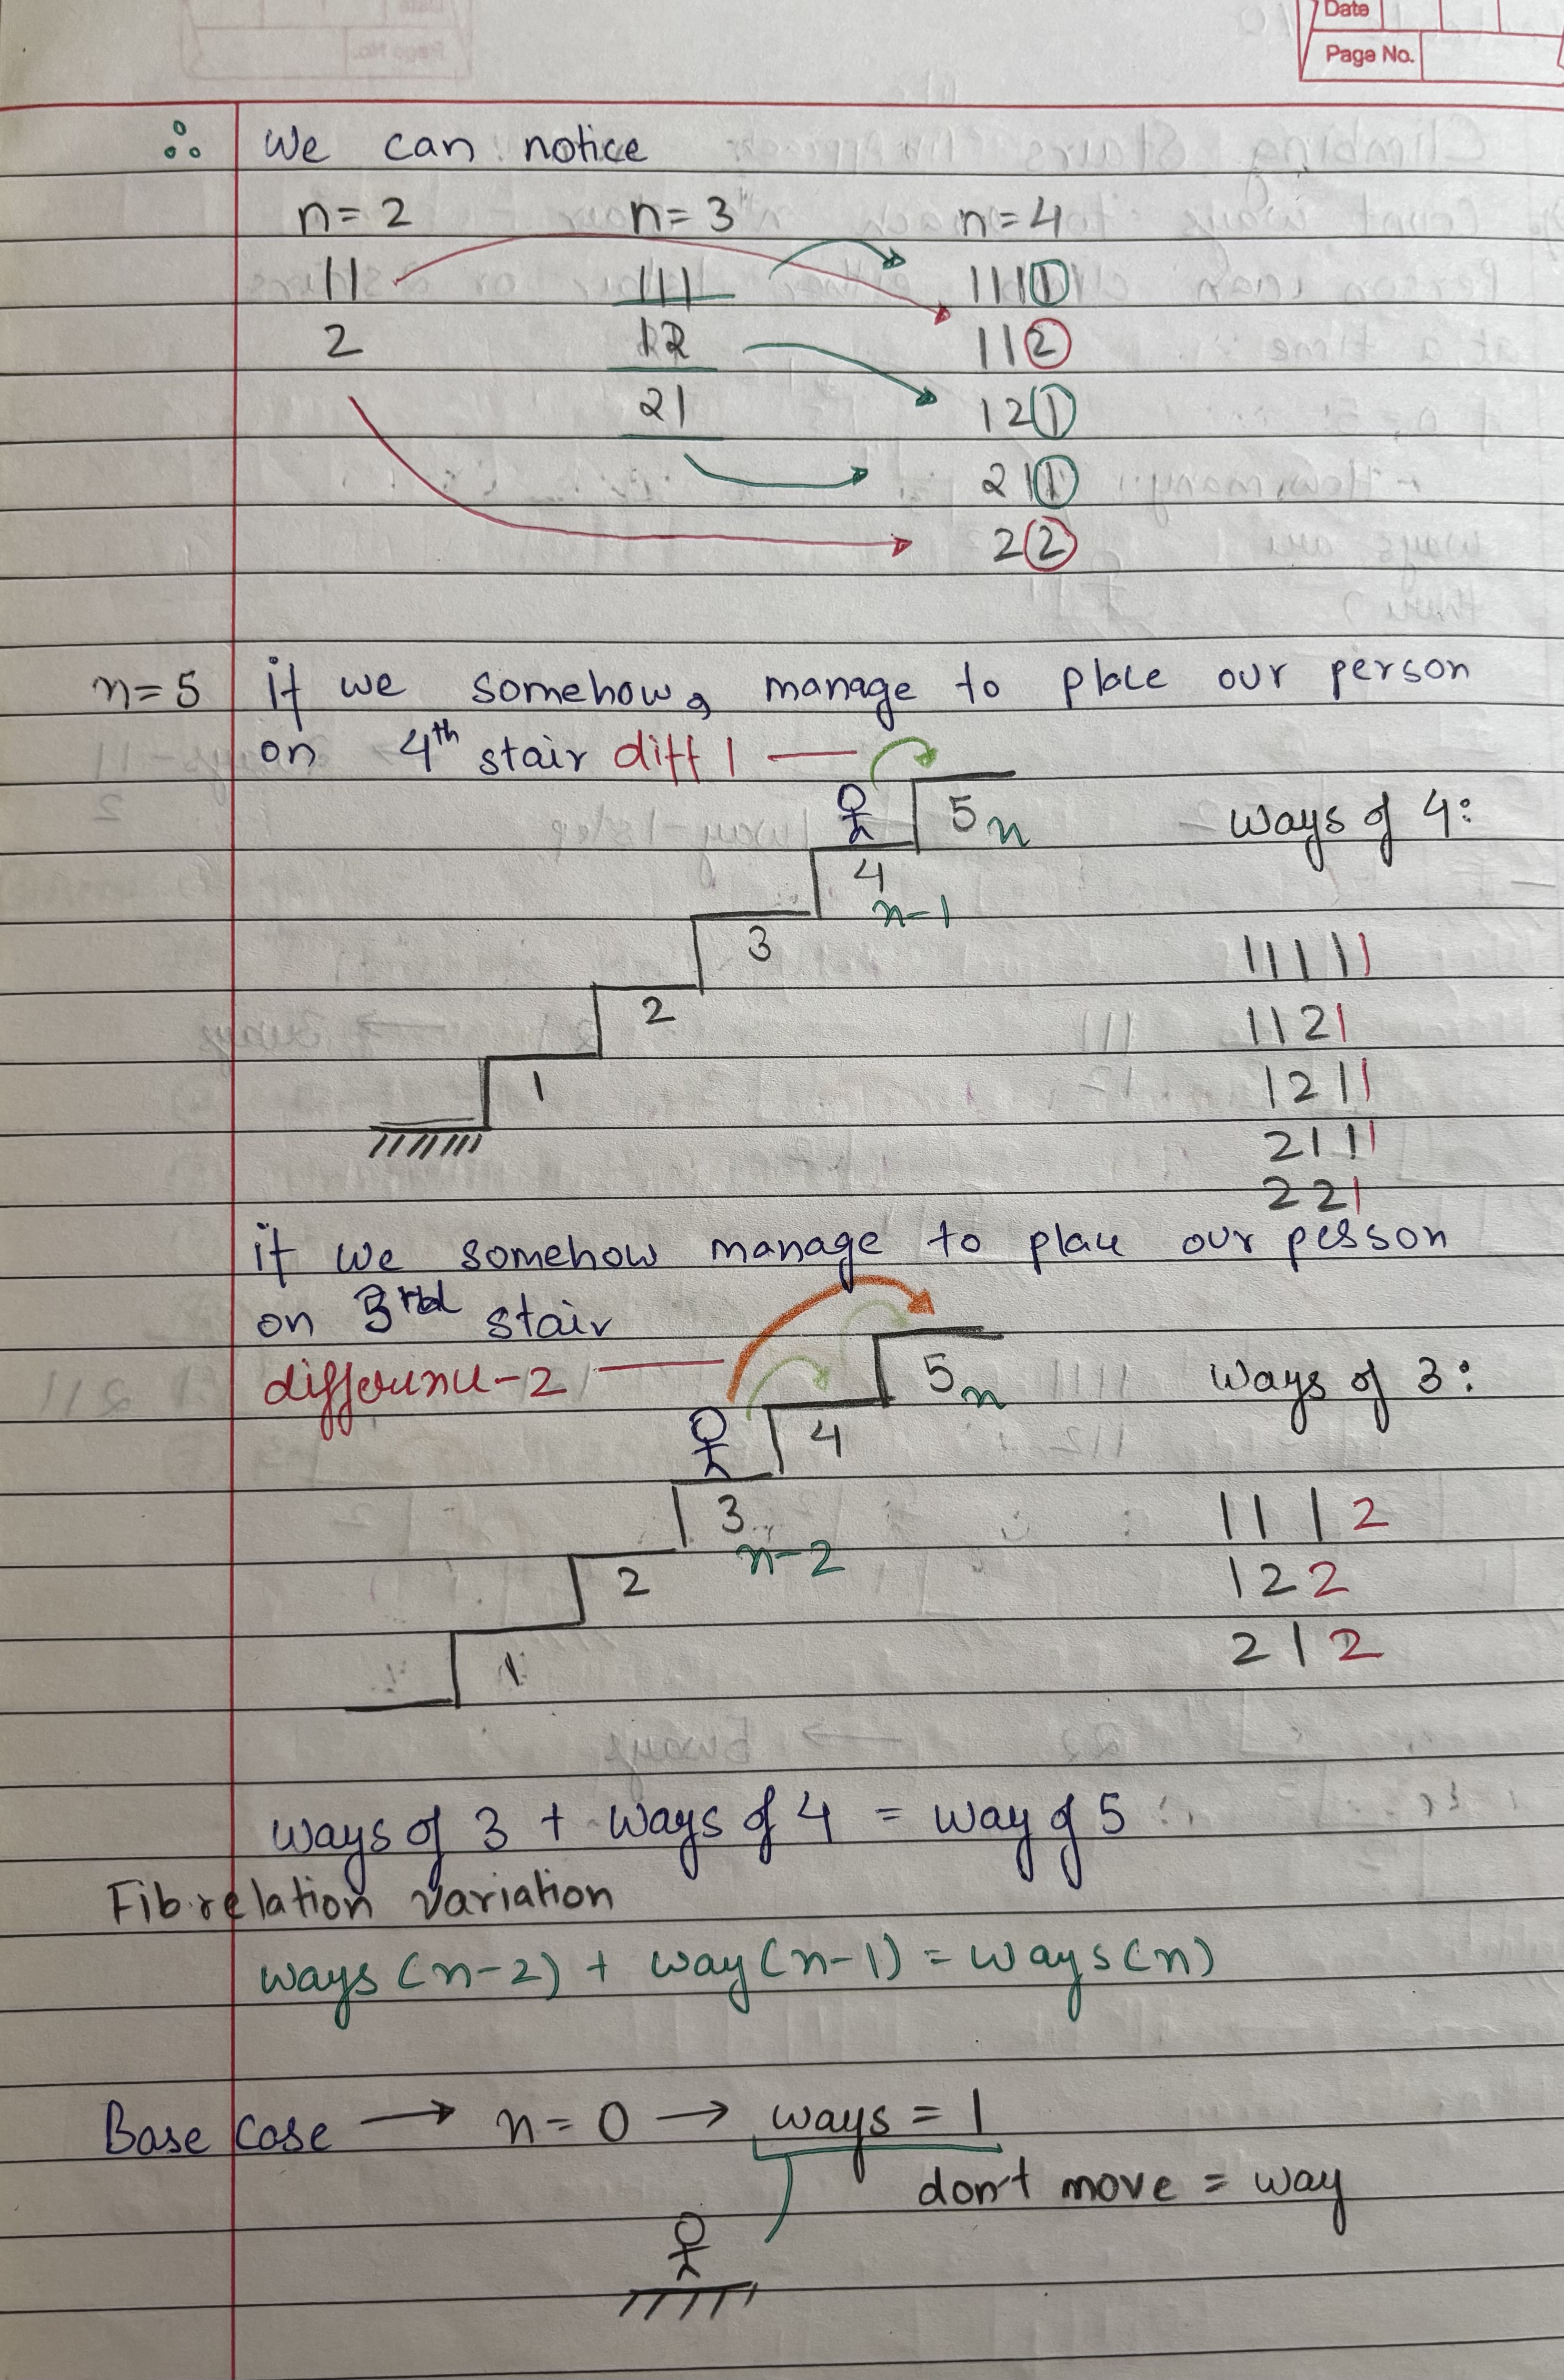 Date
Page No.
∴ We can notice
n=2 n=3 n=4
11 111 1111
2 12 112
21 121
211
22
n=5 if we somehow, manage to place our person
on 4th stair diff 1
5 n ways of 4:
4
n-1
3 11111
2 1121
1 1211
2111
221
if we somehow manage to place our person
on 3rd stair
difference-2 5 n ways of 3:
4
3 1112
n-2
2 122
1 212
ways of 3 + ways of 4 = way of 5
Fib relation variation
ways (n-2) + way (n-1) = ways (n)
Base case → n = 0 → ways = 1
don't move = way